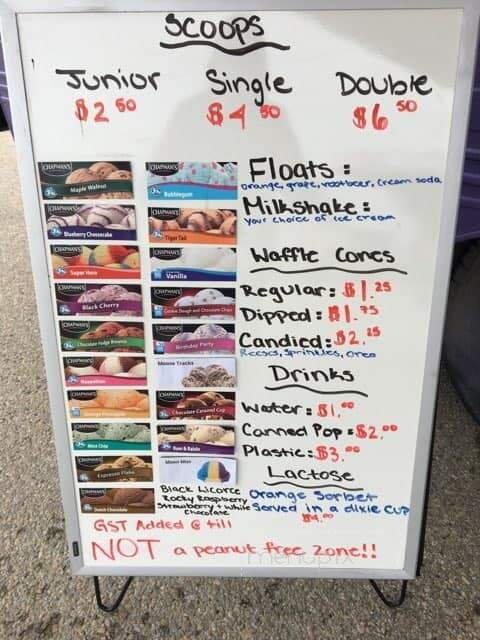 Scoops
Junior Single Double
$2 50 $4 50 $6 50
CHAPMAN'S Maple Walnut
CHAPMAN'S Bubblegum
CHAPMAN'S Blueberry Cheesecake
CHAPMAN'S Tiger Tail
CHAPMAN'S Super Hero
CHAPMAN'S Vanilla
CHAPMAN'S Black Cherry
CHAPMAN'S Cookie Dough and Chocolate Chips
CHAPMAN'S Chocolate Fudge Brownie
CHAPMAN'S Birthday Party
CHAPMAN'S Neapolitan
Moose Tracks
CHAPMAN'S Orange Pineapple
CHAPMAN'S Chocolate Caramel Cup
CHAPMAN'S Mint Chip
CHAPMAN'S Rum & Raisin
CHAPMAN'S Espresso Flake
CHAPMAN'S Dutch Chocolate
Floats :
Orange, grape, rootbeer, cream soda
Milkshake :
Your choice of ice cream
Waffle Cones
Regular : $1.25
Dipped : $1.75
Candied : $2.25
Reeses, Sprinkles, oreo
Drinks
Water : $1.00
Canned Pop : $2.00
Plastic : $3.00
Lactose
Orange Sorbet
Served in a dixie cup
$4.00
Black Licorce
Rocky Raspberry
Strawberry + White
Chocolate
GST Added @ till
NOT a peanut free zone!!
menupix